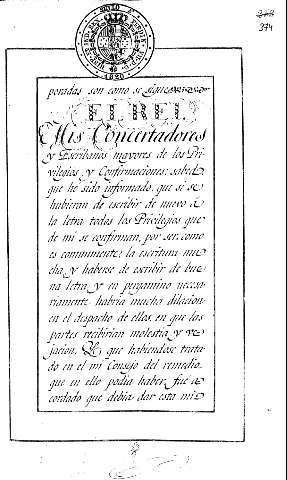 374
1820
poradas son como se sigue
EL REI.
Mis Concertadores
y Escribanos mayores de los Pri-
vilegios y Confirmaciones, sabed
que he sido informado, que si se
hubieran de escribir de nuevo á
la letra todos los Privilegios que
de mi se confirman, por ser, como
es comunmente, la escritura mu-
cha, y haberse de escribir de bue-
na letra y en pergamino necesa-
riamente habria mucha dilacion
en el despacho de ellos, en que las
partes recibirian molestia y ve-
jacion. Y que habiendose trata-
do en el mi Consejo del remedio,
que en ello podia haber, fue a-
cordado que debia dar esta mi